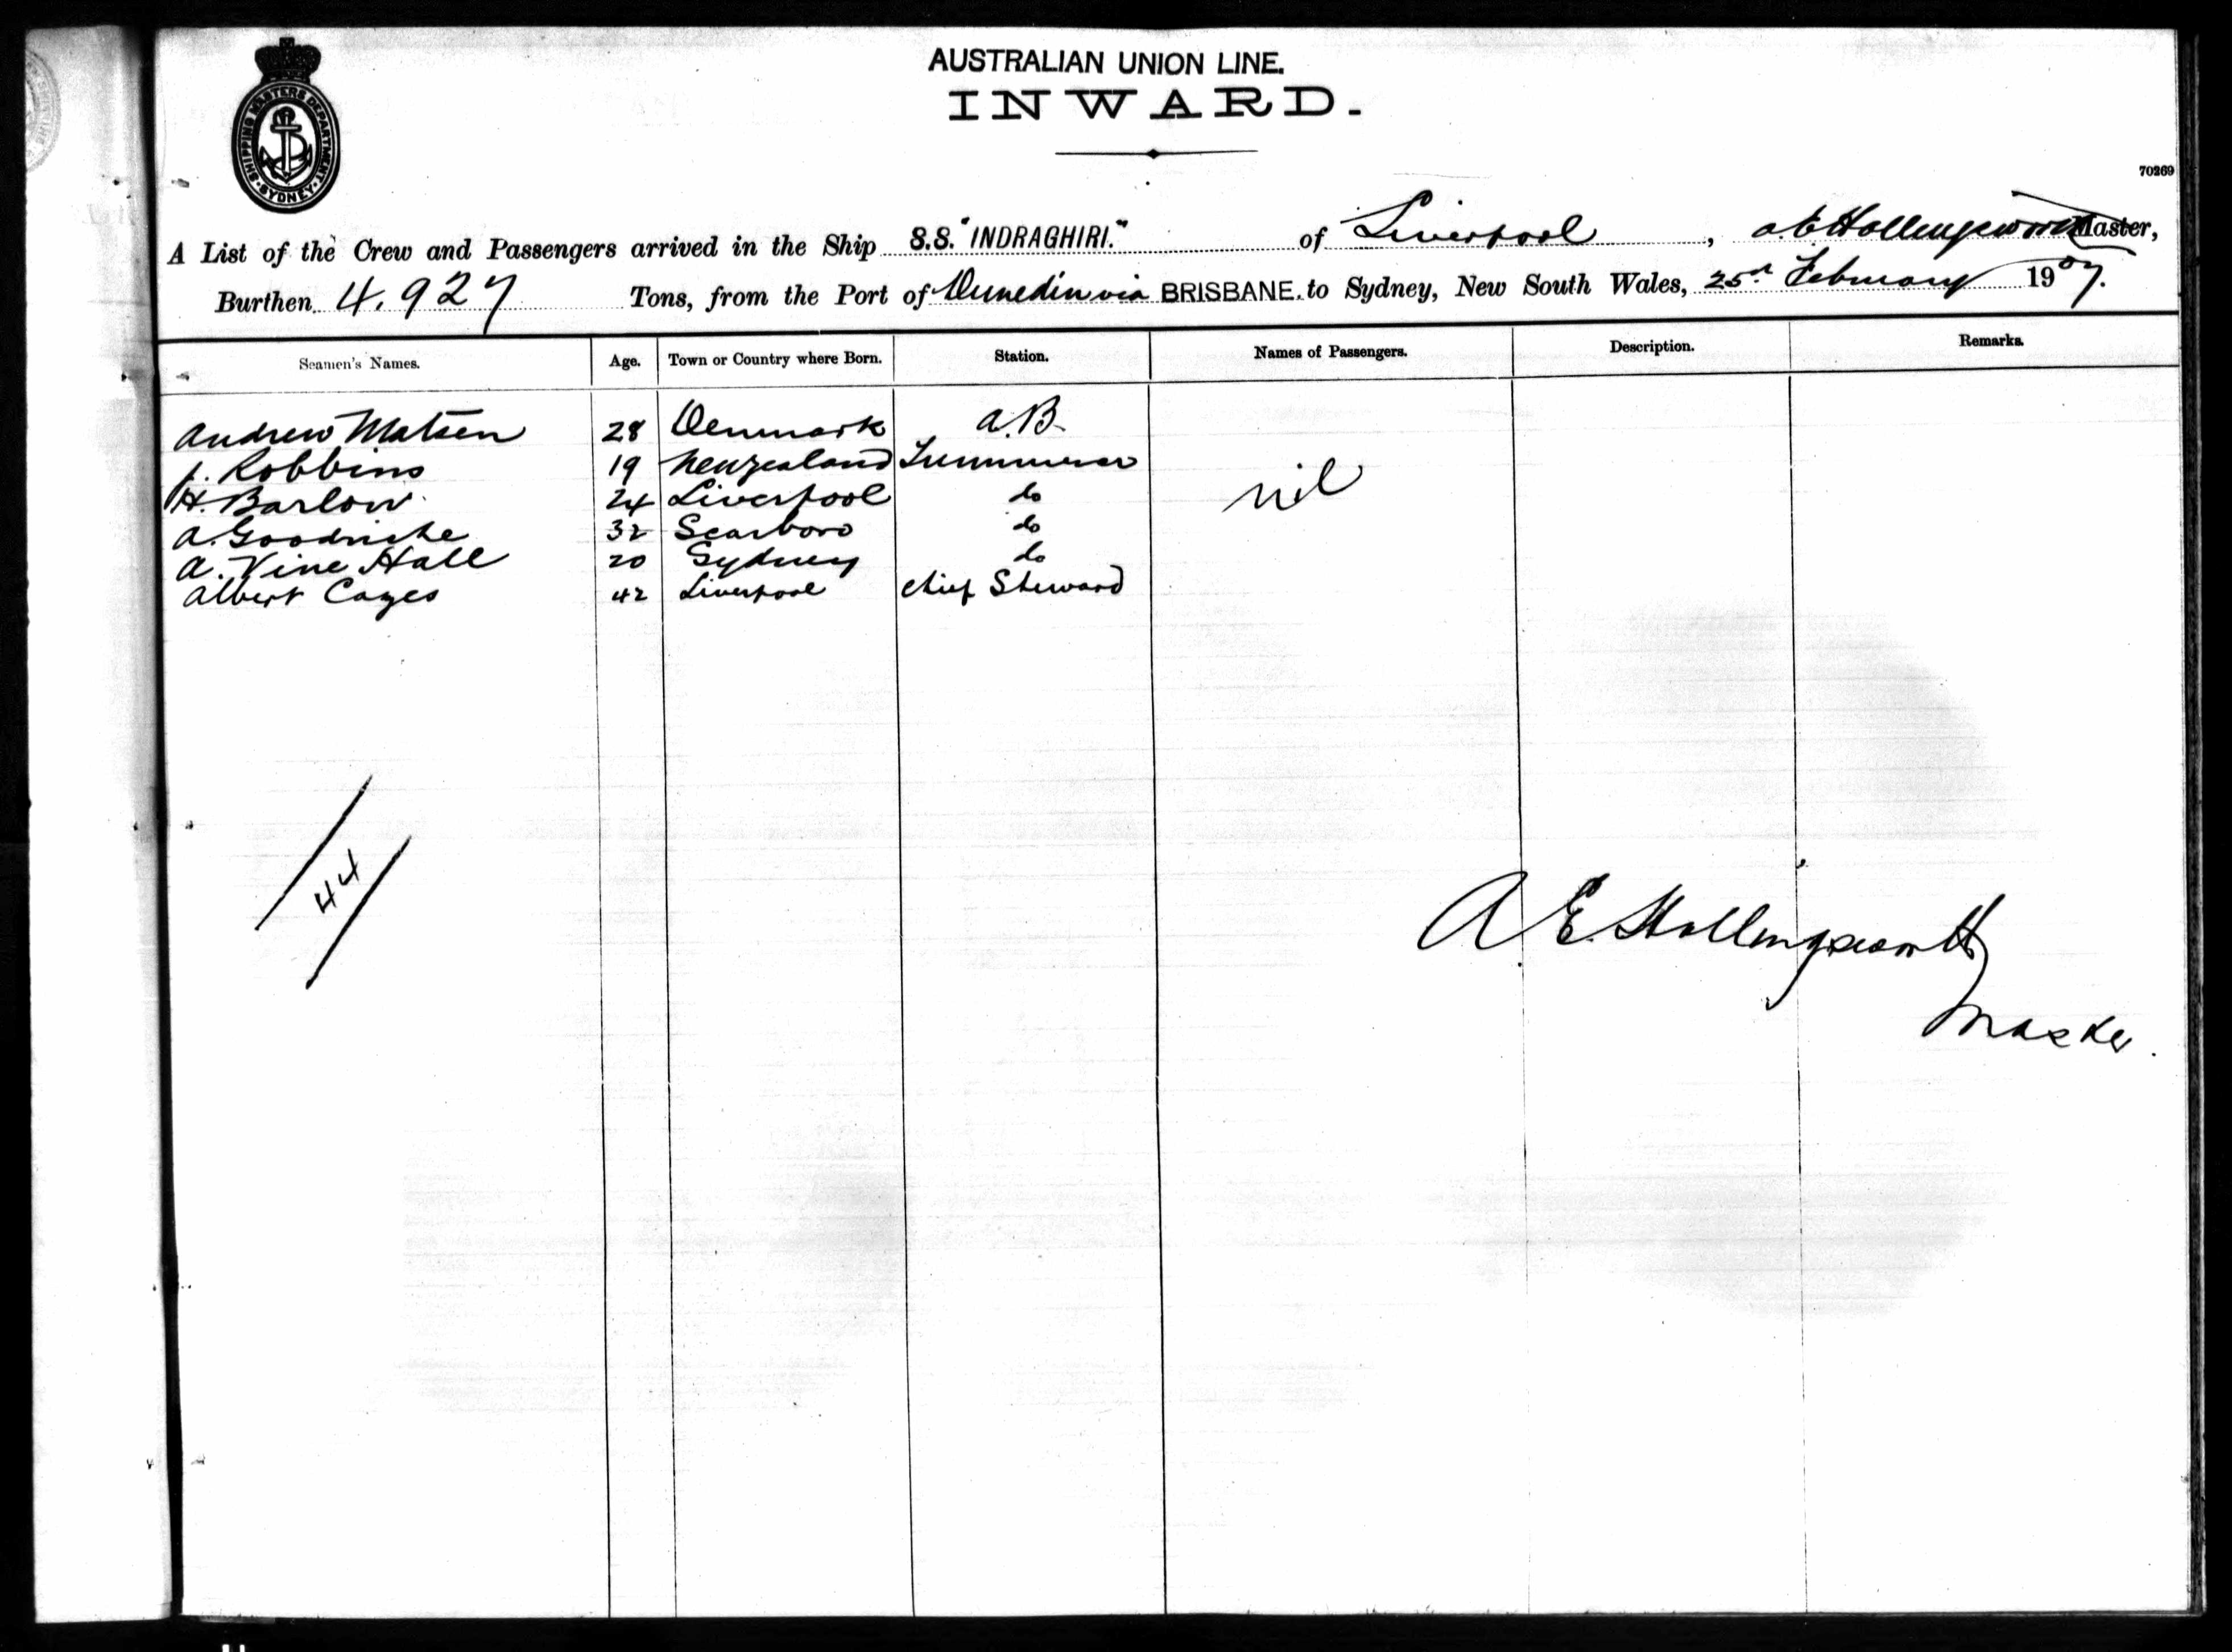 AUSTRALIAN UNION LINE.
INWARD.
SHIPPING MASTERS DEPARTMENT
SYDNEY
70269
A List of the Crew and Passengers arrived in the Ship S.S. "INDRAGHIRI." of Liverpool, A.E Hollingsworth Master,
Burthen 4,927 Tons, from the Port of Dunedin via BRISBANE. to Sydney, New South Wales, 25th February 1907.
Seamen's Names. Age. Town or Country where Born. Station. Names of Passengers. Description. Remarks.
Andrew Matsen 28 Denmark A.B.
J. Robbins 19 New Zealand Trimmer
H. Barlow 24 Liverpool do nil
A. Goodriche 32 Scarboro do
A. Vine Hall 20 Sydney do
Albert Cages 42 Liverpool Chief Steward
44
A E. Hollingsworth
Master.